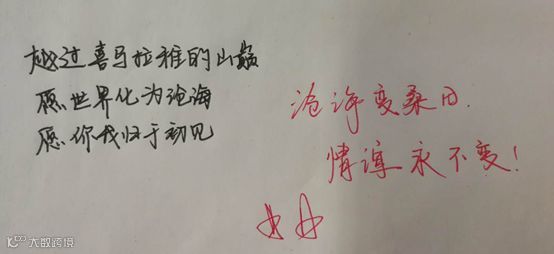 越过喜马拉雅的山巅
愿世界化为沧海
愿你我归于初见
沧海变桑田.
情谊永不变!
大数跨境